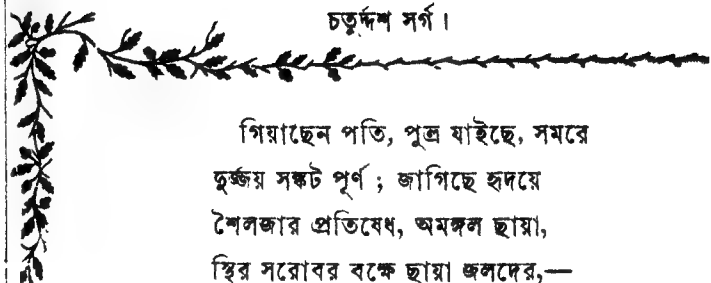 চতুর্দ্দশ সর্গ।
গিয়াছেন পতি, পুত্র যাইছে, সমরে
দুর্জ্জয় সঙ্কট পূর্ণ ; জাগিছে হৃদয়ে
শৈলজার প্রতিষেধ, অমঙ্গল ছায়া,
স্থির সরোবর বক্ষে ছায়া জলদের,—